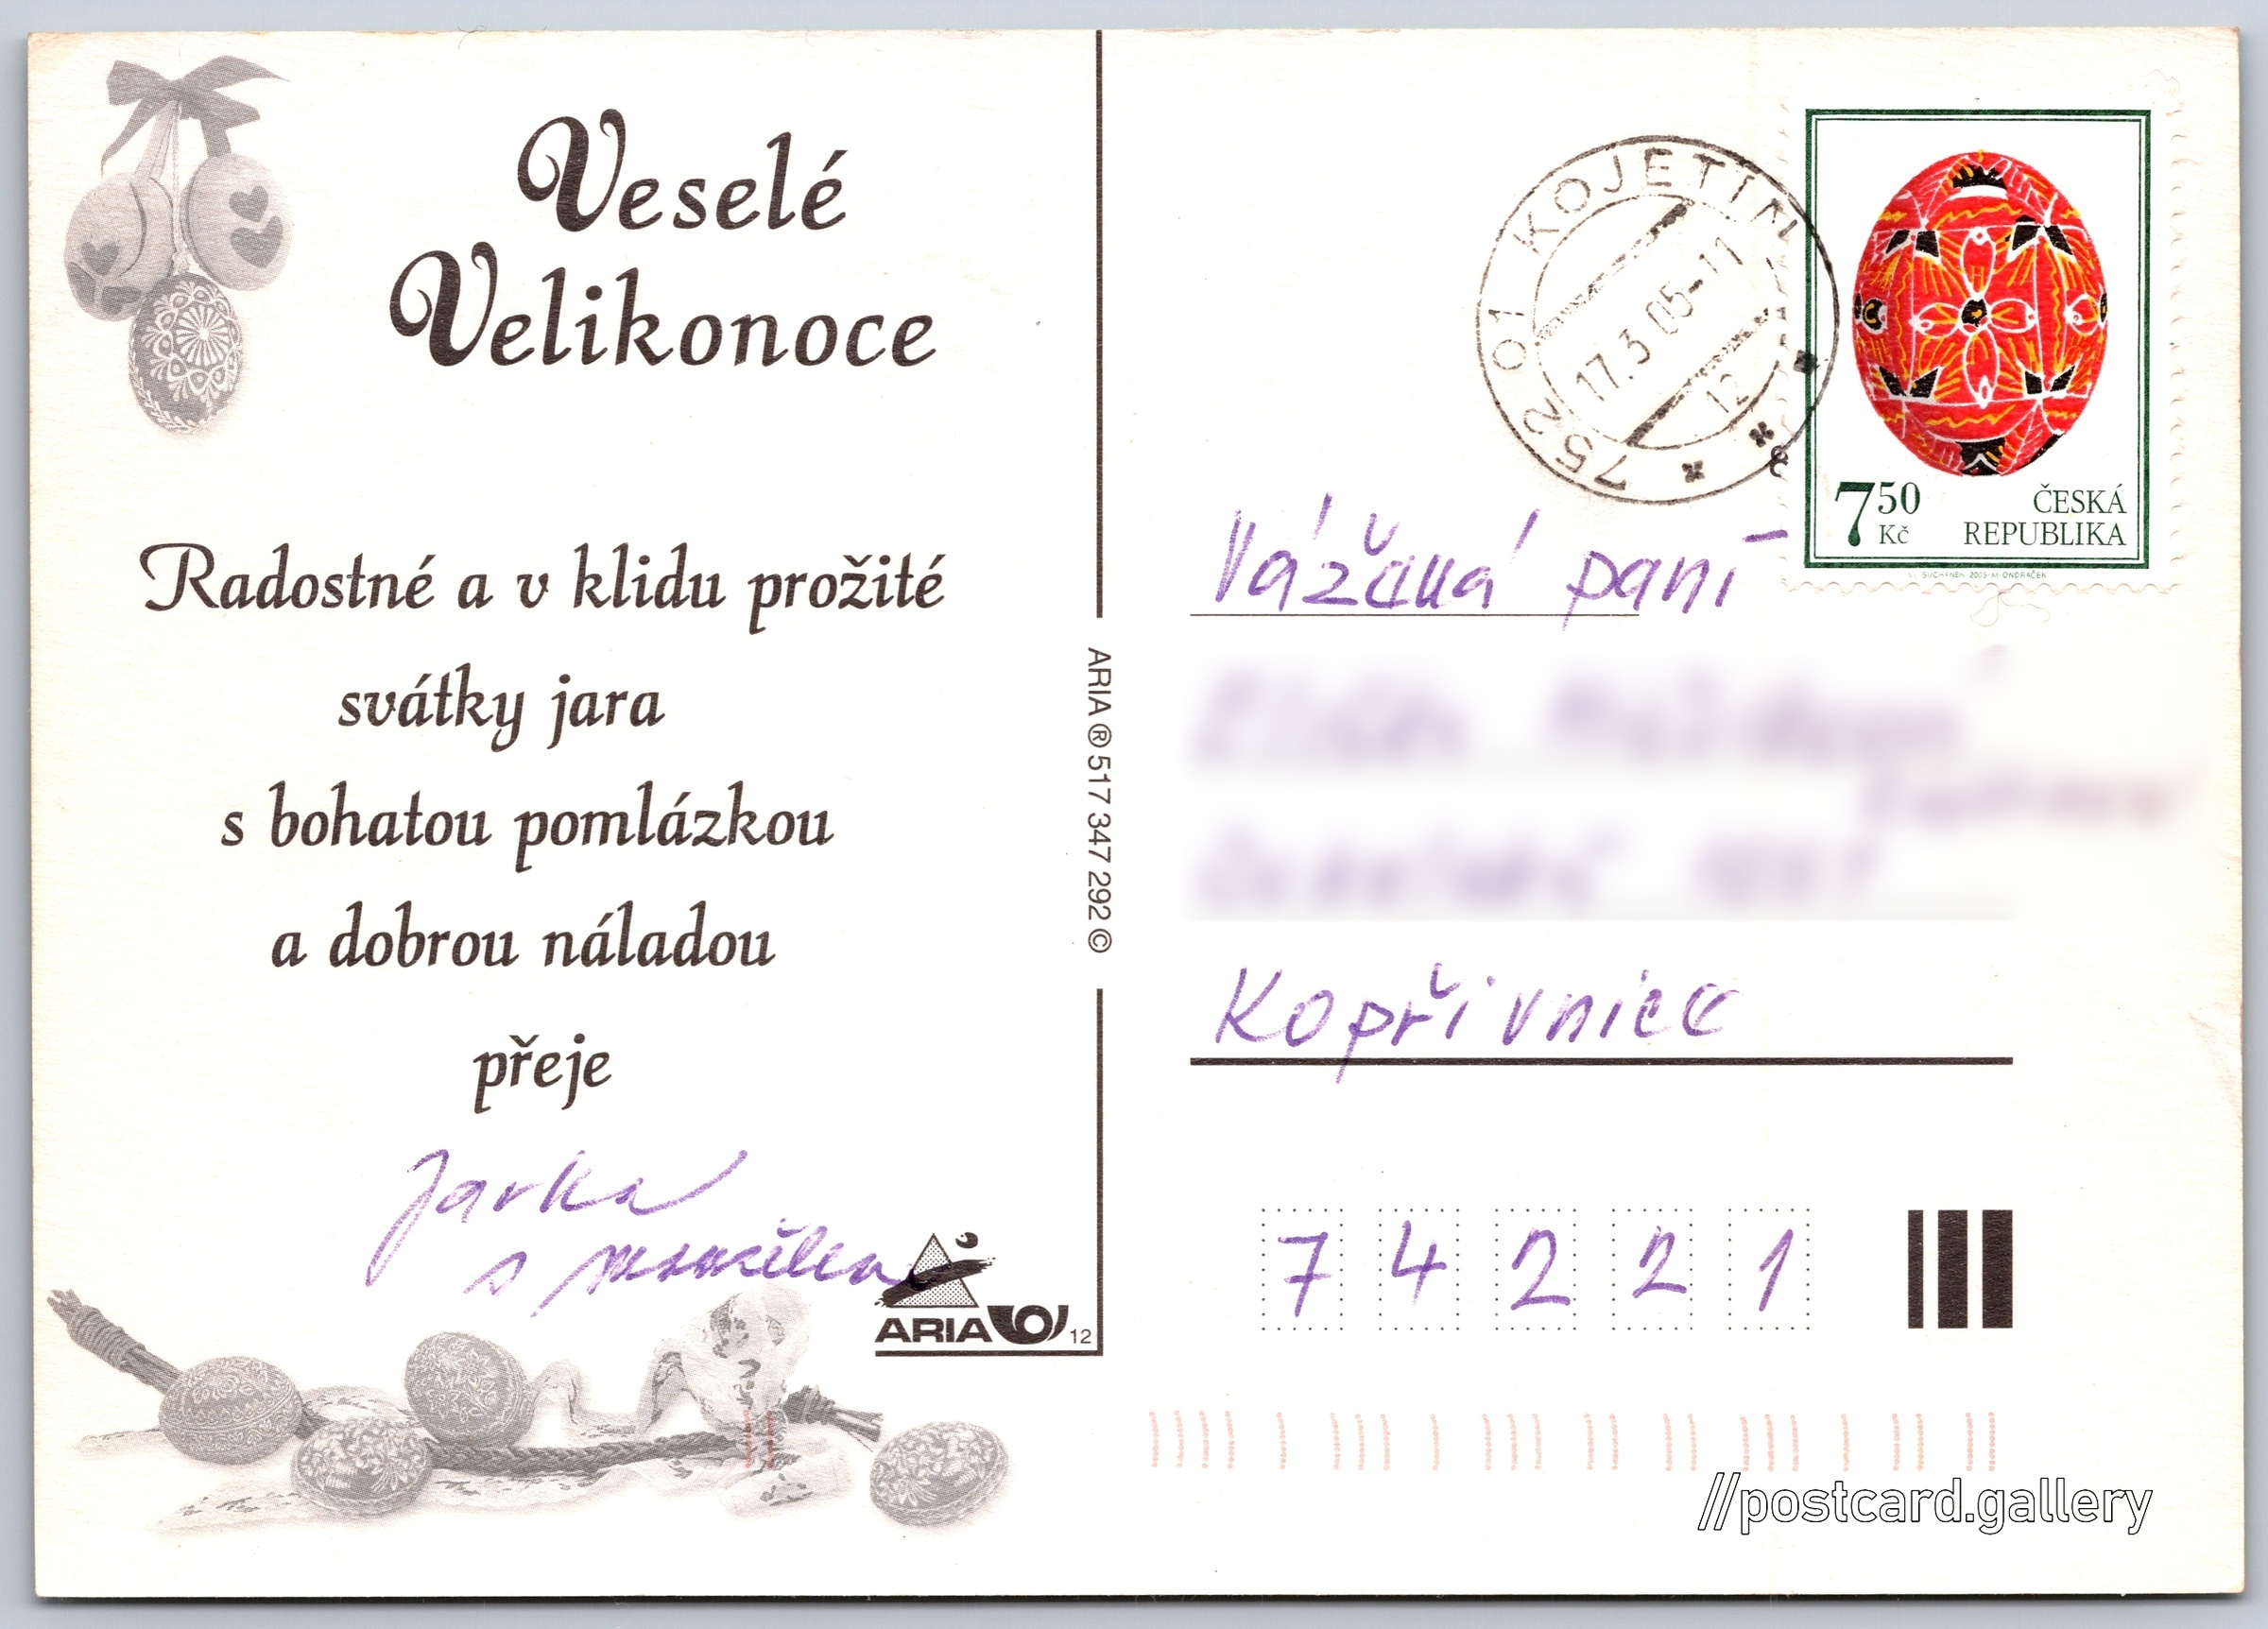 Veselé
Velikonoce
Radostné a v klidu prožité
svátky jara
s bohatou pomlázkou
a dobrou náladou
přeje
Jarka
s manželem
ARIA
12
ARIA ® 517 347 292 ©
752 01 KOJETÍN
17.3.05-11
12
7 50
Kč
ČESKÁ
REPUBLIKA
V. SUCHÁNEK 2005 M. ONDRÁČEK
Vážená paní
Kopřivnice
7 4 2 2 1
//postcard.gallery